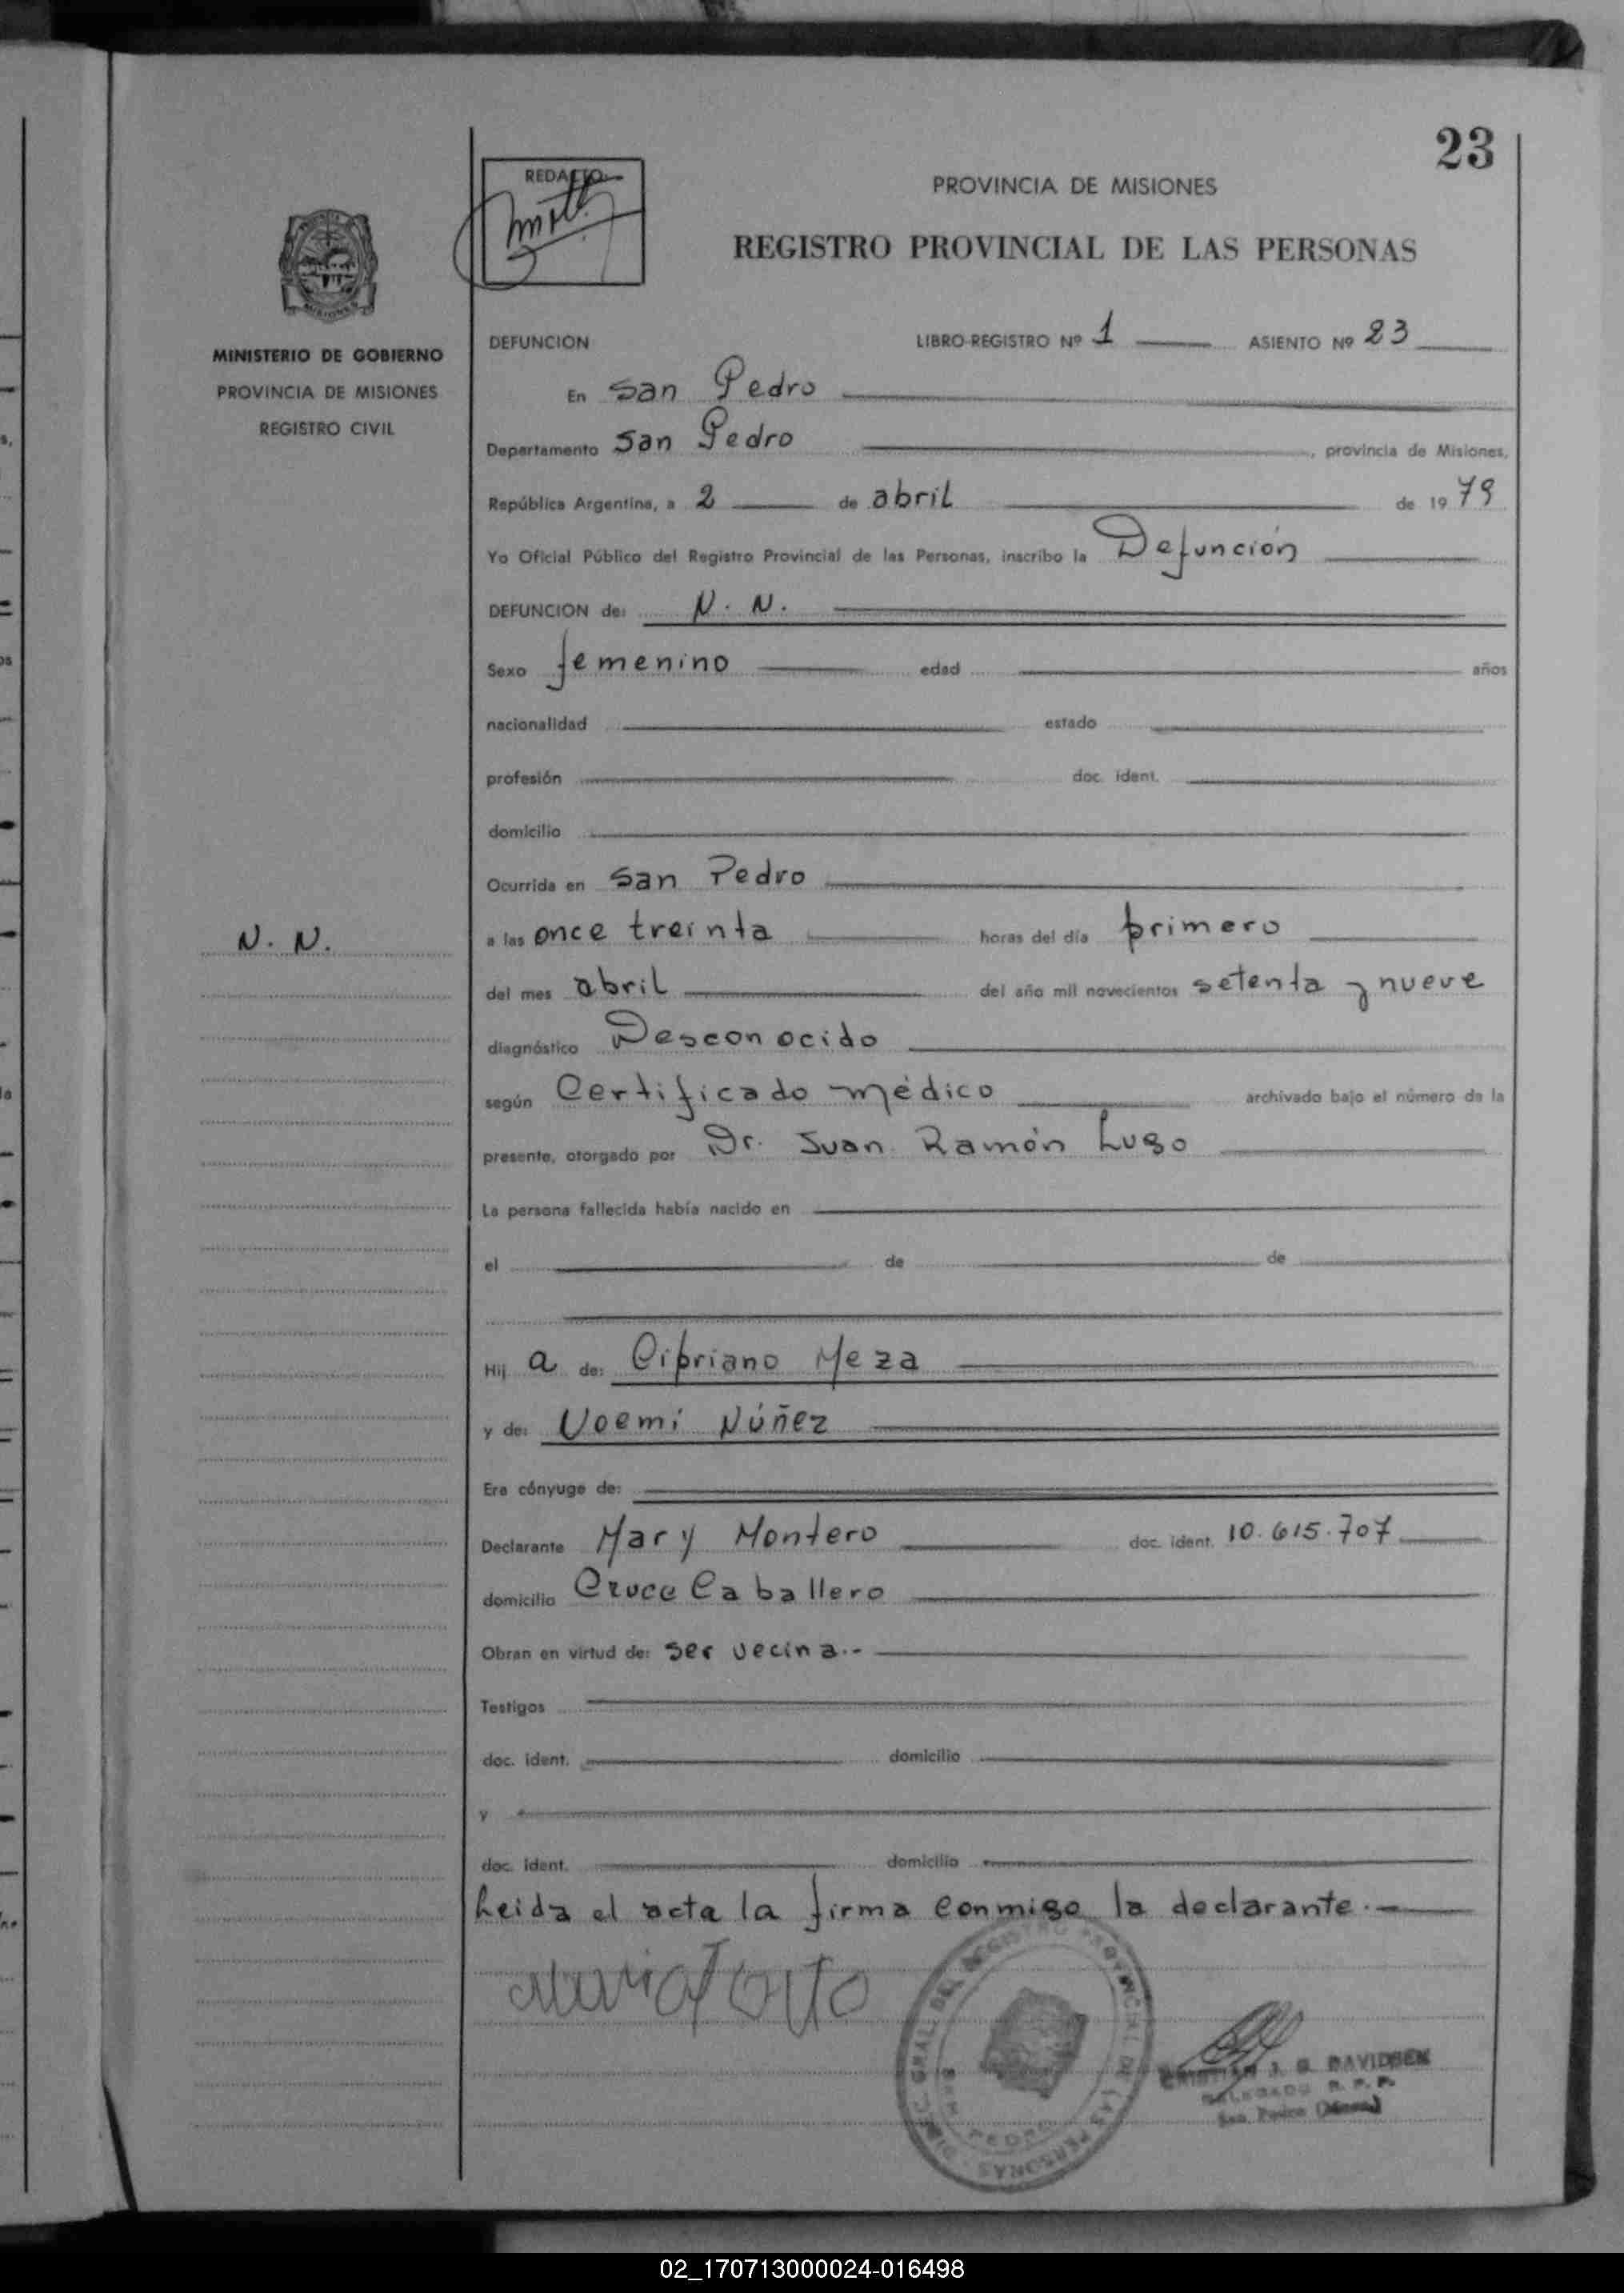 23
REDACTO:
PROVINCIA DE MISIONES
REGISTRO PROVINCIAL DE LAS PERSONAS
MINISTERIO DE GOBIERNO
PROVINCIA DE MISIONES
REGISTRO CIVIL
DEFUNCION LIBRO-REGISTRO Nº 1 ASIENTO Nº 23
En San Pedro
Departamento San Pedro, provincia de Misiones,
República Argentina, a 2 de abril de 1979
Yo Oficial Público del Registro Provincial de las Personas, inscribo la Defunción
DEFUNCION de: N. N.
Sexo femenino edad años
nacionalidad estado
profesión doc. ident.
domicilio
Ocurrida en San Pedro
N. N.
a las once treinta horas del día primero
del mes abril del año mil novecientos setenta y nueve
diagnóstico Desconocido
según Certificado médico archivado bajo el número de la
presente, otorgado por Dr. Juan Ramón Lugo
La persona fallecida había nacido en
el de de
Hija de: Cipriano Meza
y de: Noemi Núñez
Era cónyuge de:
Declarante Mary Montero doc. ident. 10.615.707
domicilio Cruce Caballero
Obran en virtud de: ser vecina.-
Testigos
doc. ident. domicilio
y
doc. ident. domicilio
Leida el acta la firma conmigo la declarante.-
DIREC. GRAL. DEL REGISTRO PROVINCIAL DE LAS PERSONAS
PEDRO
CRISTIAN J. G. DAVIDSEN
DELEGADO R. P. P.
San Pedro (Mnes.)
02_170713000024-016498